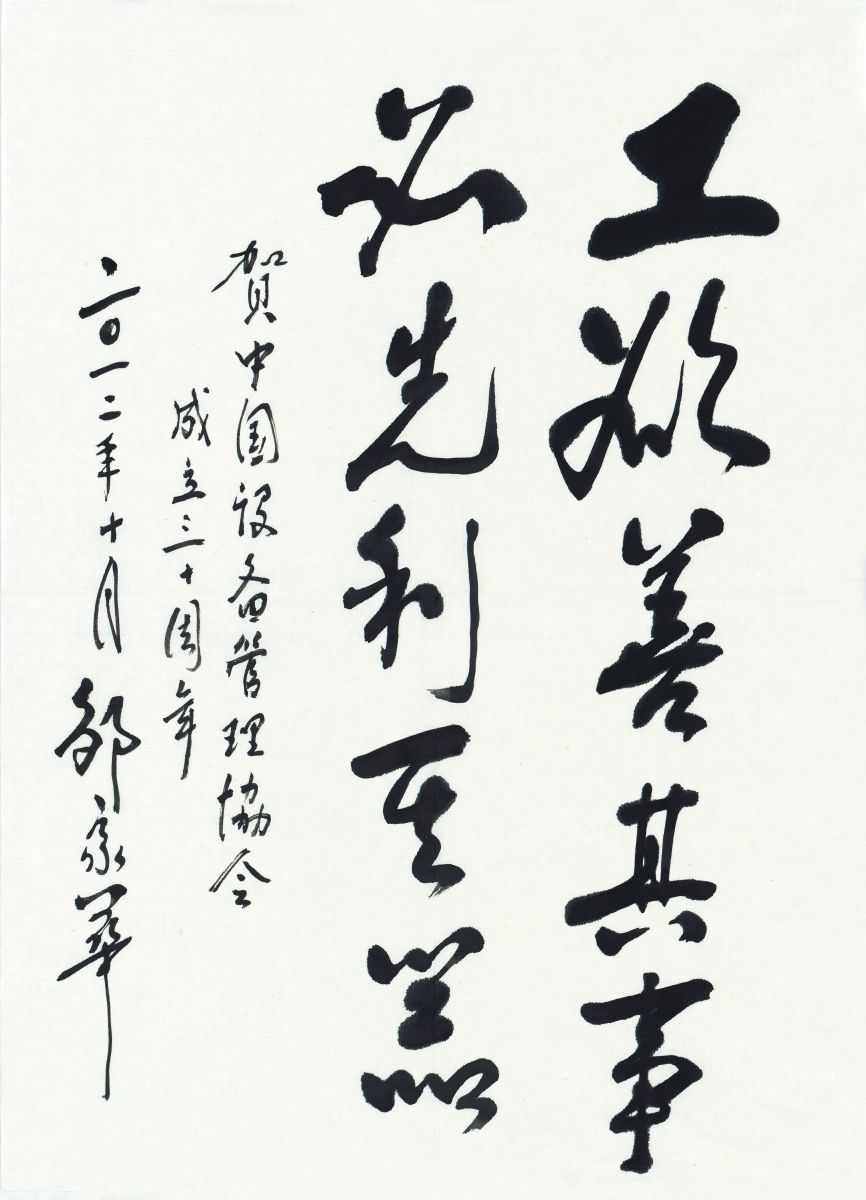 工欲善其事
必先利其器
贺中国设备管理协会
成立三十周年
二〇一二年十月 邹家华